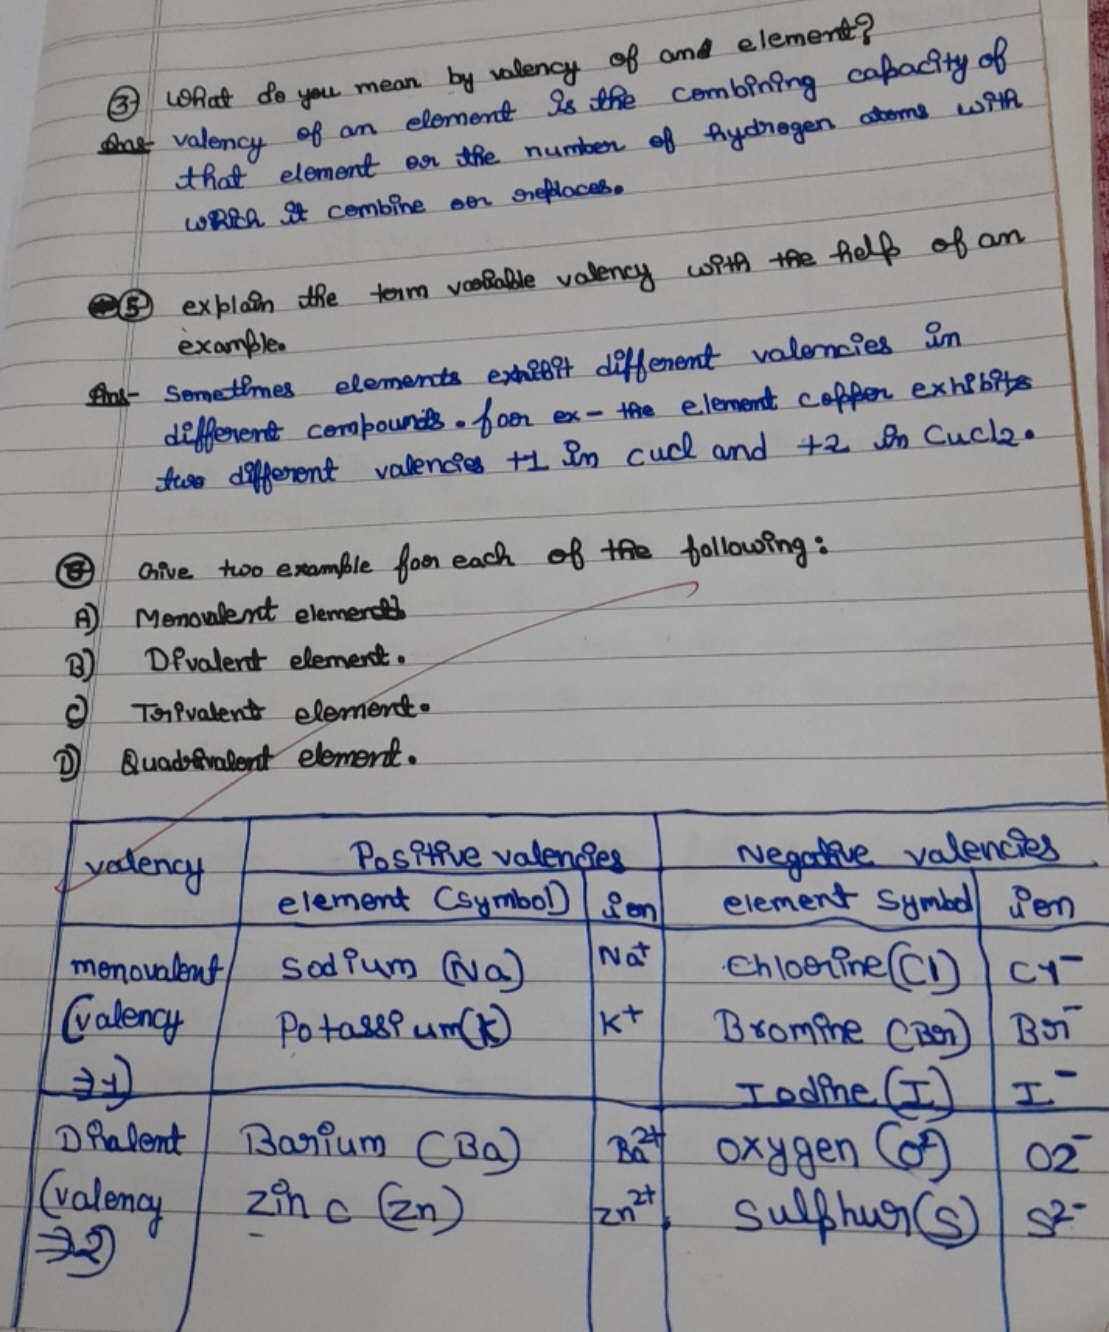 ③ What do you mean by valency of and element?
Ans- valency of an element is the combining capacity of
that element or the number of hydrogen atoms with
which it combine or replaces.
⑤ explain the term variable valency with the help of an
example.
Ans- Sometimes elements exhibit different valencies in
different compounds. for ex - the element copper exhibits
two different valencies +1 in cucl and +2 in Cucl2.
Give two example for each of the following:
A) Monovalent element
B) Divalent element.
C) Trivalent element.
D) Quadrivalent element.
valency Positive valencies Negative valencies
element (symbol) ion element Symbol ion
monovalent Sodium (Na) Na+ Chlorine (Cl) Cl-
(valency Potassium (K) K+ Bromine (Br) Br-
⇒1) Iodine (I) I-
Divalent Barium (Ba) Ba2+ oxygen O2-
(valency zinc (Zn) zn2+ Sulphur (S) S2-
⇒2)